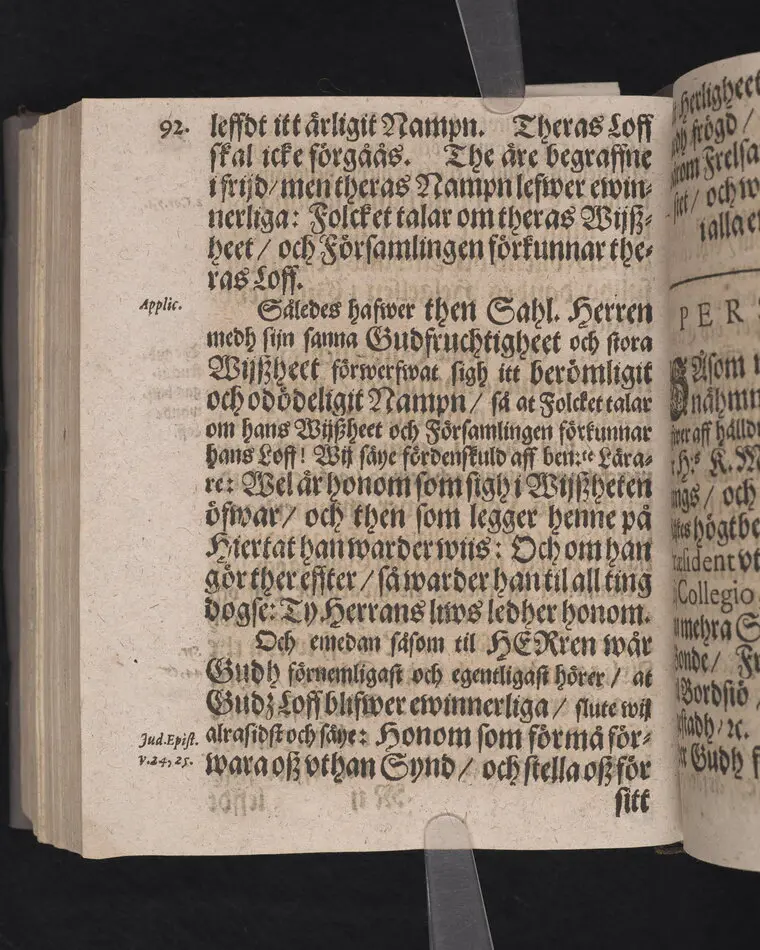 92. leffdt itt ärligit Nampn. Theras Loff
skal icke förgåås. The äre begraffne
i frijd / men theras Nampn lefwer ewin-
nerliga: Folcket talar om theras Wijsz-
heet / och Församlingen förkunnar the-
ras Loff.
Applic.
Således hafwer then Sahl. Herren
medh sijn sanna Gudfruchtigheet och stora
Wijszheet förwerfwat sigh itt berömligit
och odödeligit Nampn / så at Folcket talar
om hans Wijszheet och Församlingen förkunnar
hans Loff! Wij säye fördenskuld aff ben:te Lära-
re: Wel är honom som sigh i Wijszheten
öfwar / och then som legger henne på
Hiertat han warder wiis: Och om han
gör ther effter / så warder han til all ting
dogse: Ty Herrans liws ledher honom.
Och emedan såsom til HERren wår
Gudh förnemligast och egentligast hörer / at
Gudz Loff blifwer ewinnerliga / slute wij
alrasidst och säye: Honom som förmå för-
Jud. Epist.
v. 24, 25.
wara osz vthan Synd / och stella osz för
sitt
Herligheet
frögd /
Frelsa
/ och w
i alla e
PERS
Såsom
nähmn
aff hälld
H:s K. M
/ och
högtbe
Collegio
mehra S
Bordsiö
/ ꝛc.
Gudh f